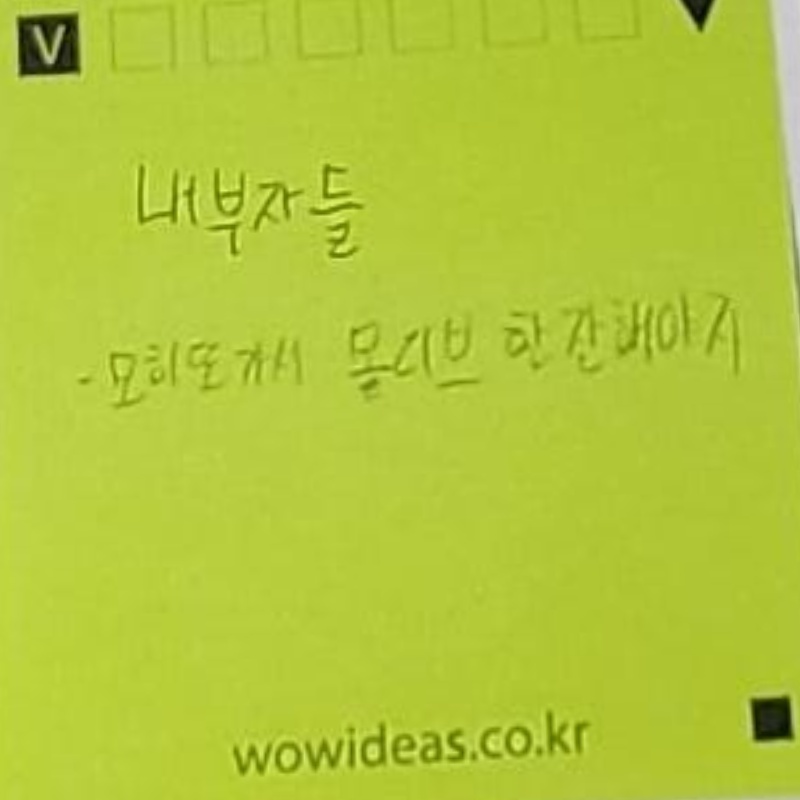 V
내부자들
- 모히또가서 몰디브 한잔해야지
wowideas.co.kr